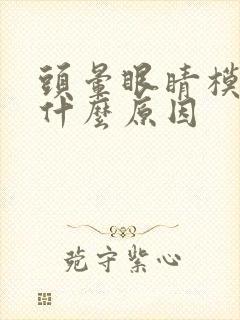 頭暈眼睛模
什麼原因
苑守紫心